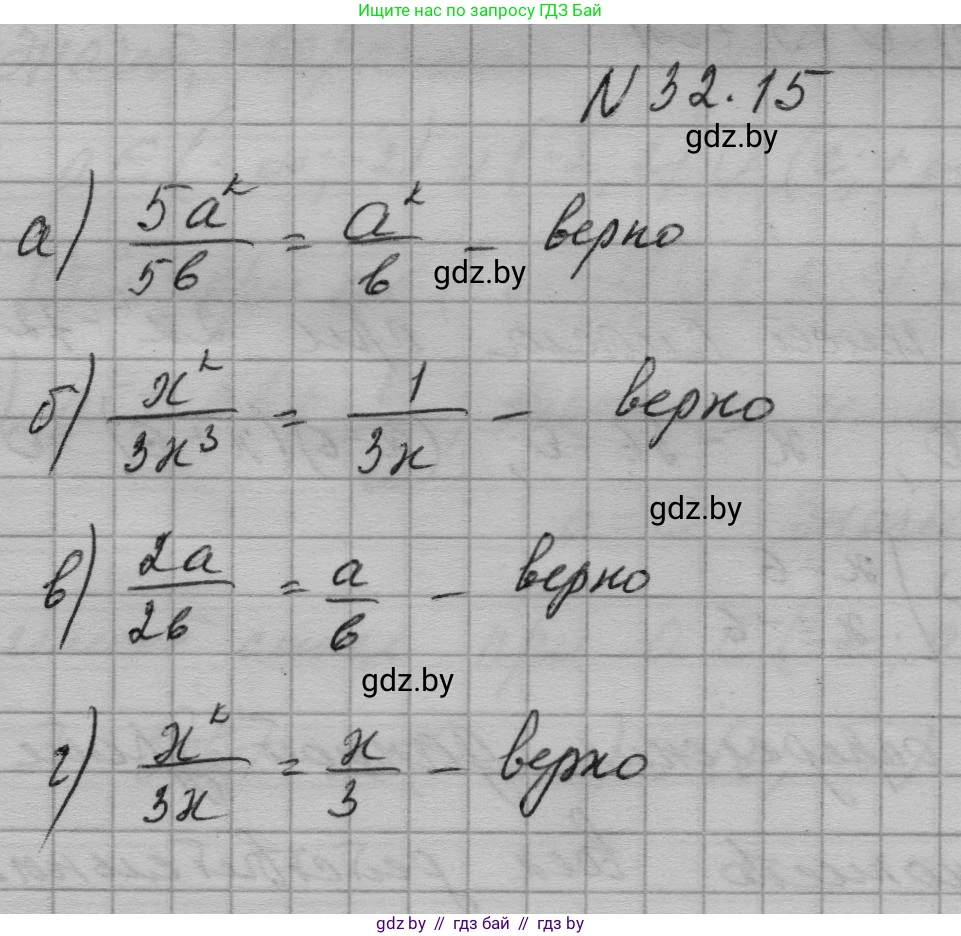 Ищите нас по запросу ГДЗ Бай
N 32.15
gdz.by
а) 5a²/5b = a²/b - верно
gdz.by
б) x²/3x³ = 1/3x - верно
gdz.by
в) 2a/2b = a/b - верно
gdz.by
г) x²/3x = x/3 - верно
gdz.by // гдз бай // гдз by